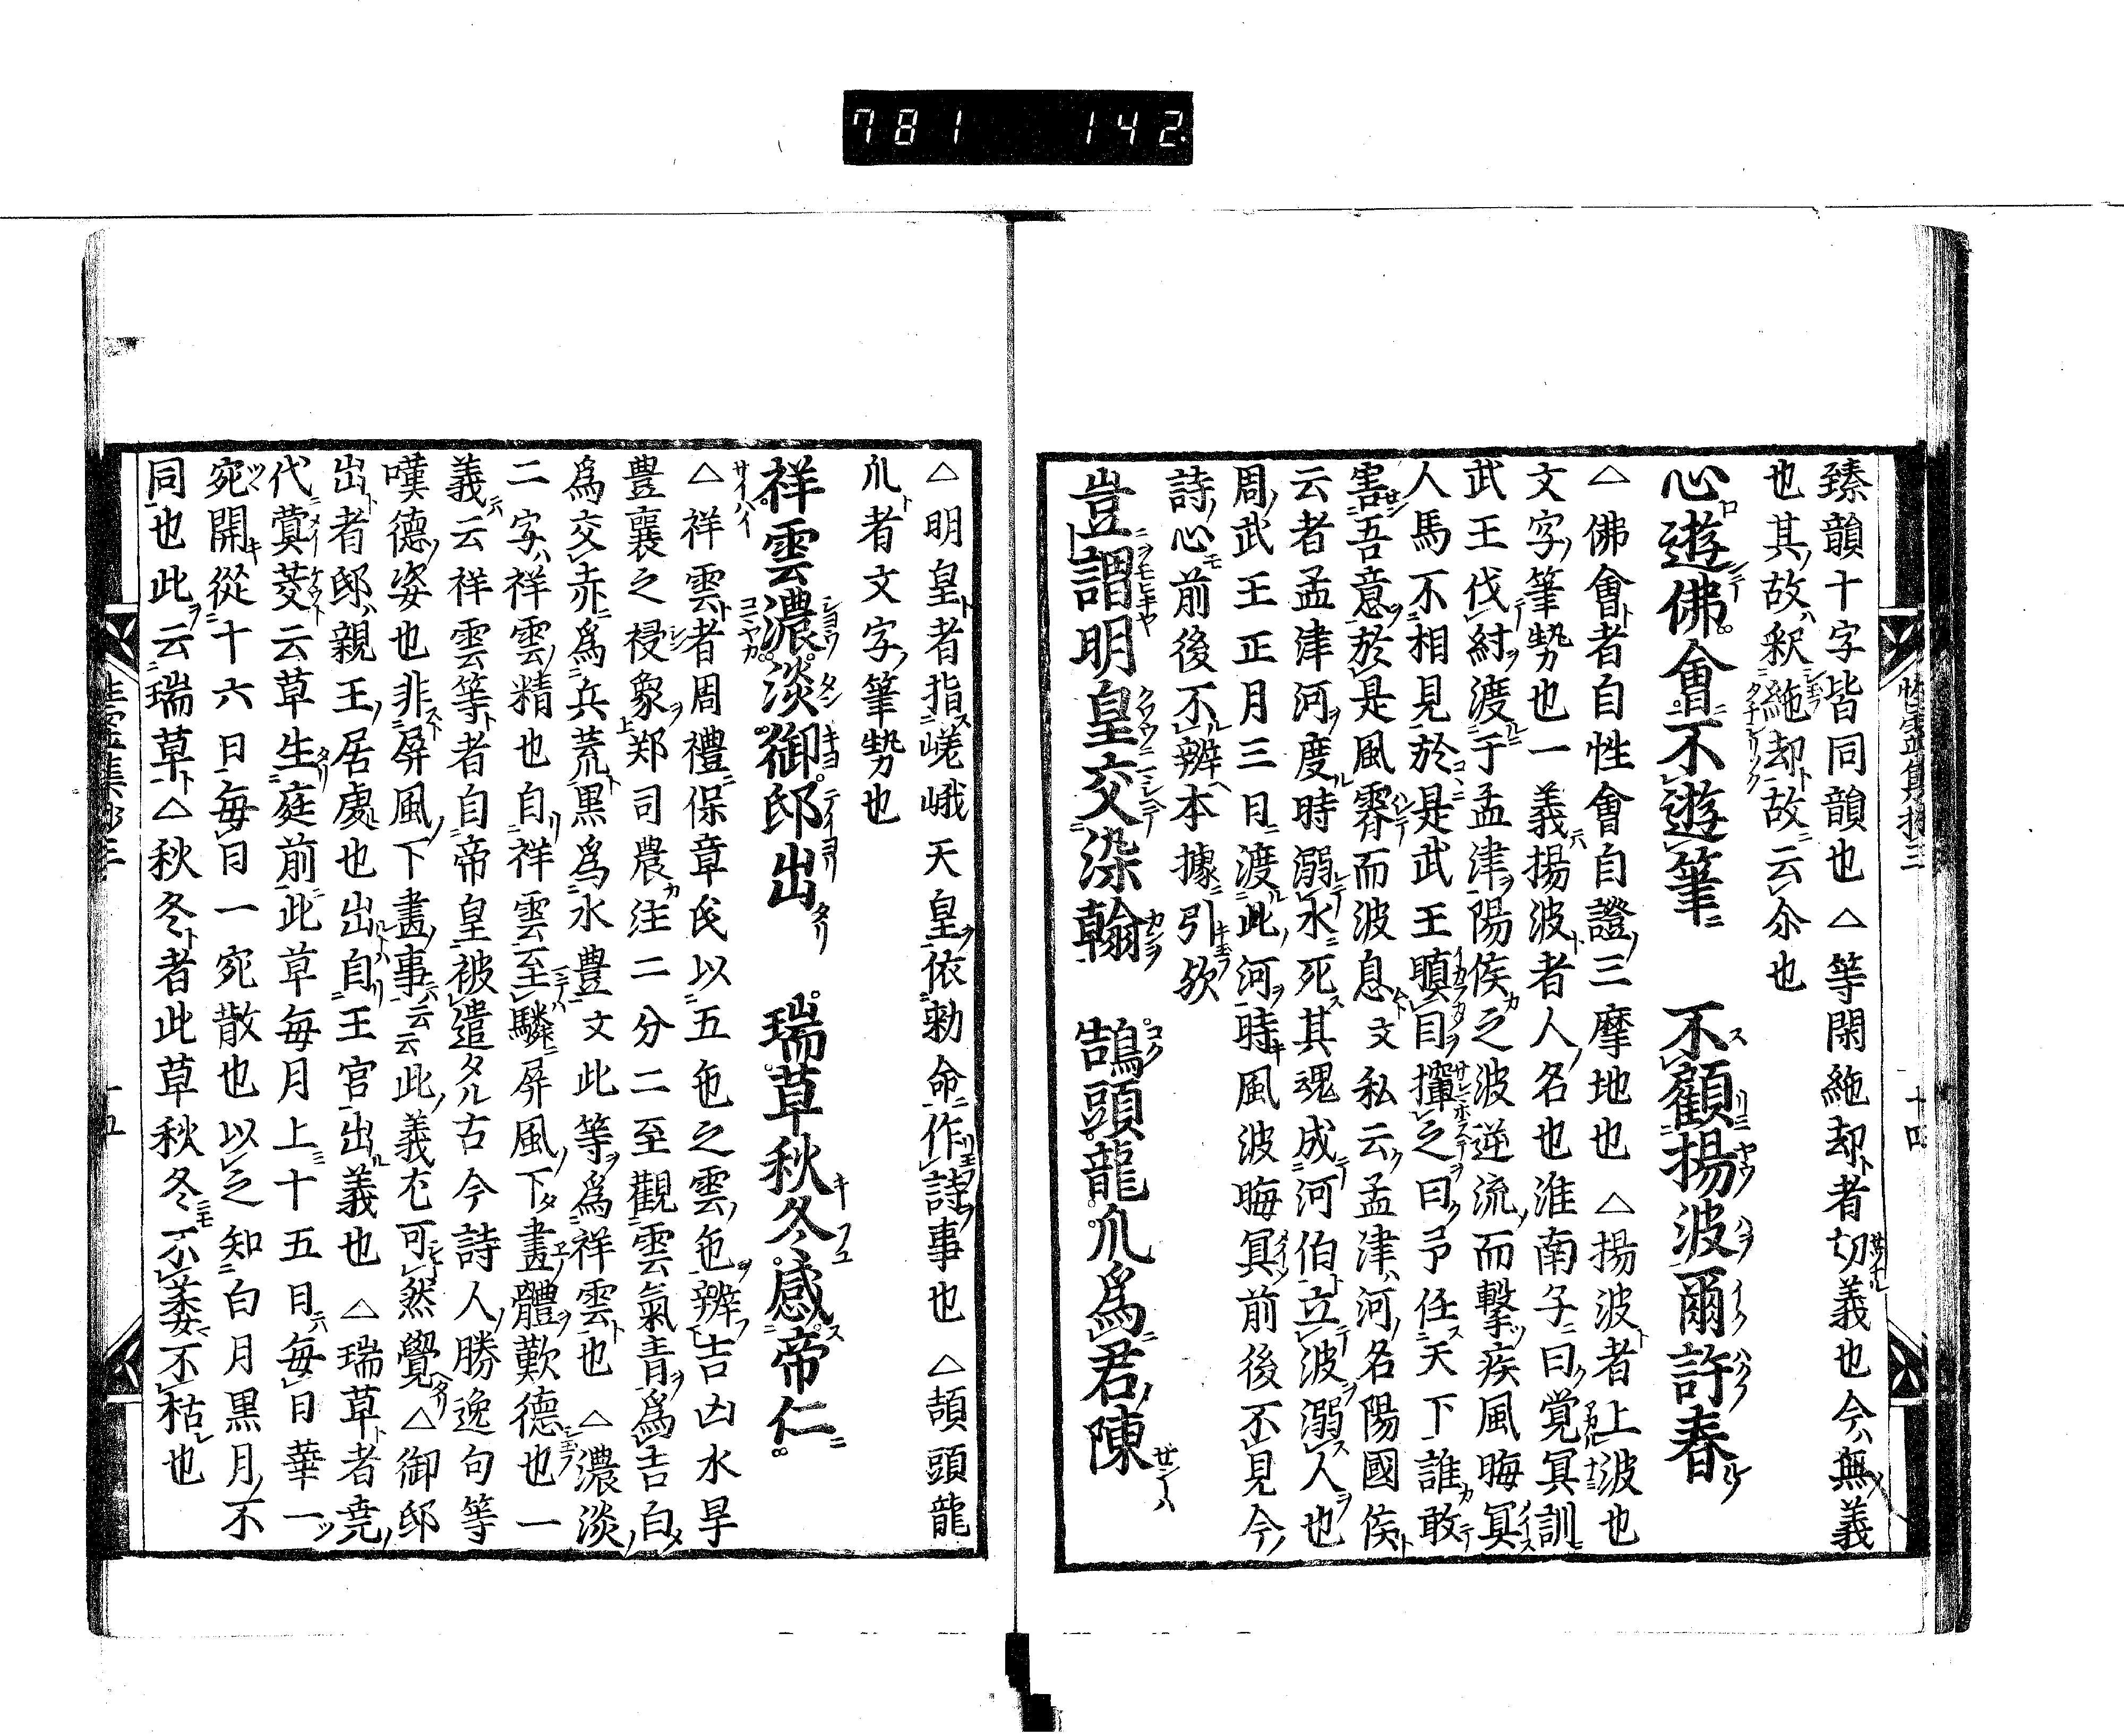 781 142
性霊集抄三 十四
臻韻十字皆同韻也△等閑絁却者切義也今無義
也其故釈絁却故云尒也
心遊佛會不遊筆 不顧揚波爾許春
△佛會者自性會自證三摩地也△揚波者上波也
文字筆勢也一義揚波者人名也淮南子曰覚冥訓
武王伐紂渡于孟津陽侯之波逆流而撃疾風晦冥
人馬不相見於是武王瞋目撣之曰予任天下誰敢
害吾意於是風霽而波息文私云孟津河名陽國侯
云者孟津河度時溺水死其魂成河伯立波溺人也
周武王正月三日渡此河時風波晦冥前後不見今
詩心前後不辨本據引欤
豈謂明皇交染翰 鵠頭龍爪爲君陳
△明皇者指嵯峨天皇依勅命作詩事也△頡頭龍
爪者文字筆勢也
祥雲濃淡御邸出 瑞草秋冬感帝仁
△祥雲者周禮保章氏以五色之雲色辨吉凶水旱
豊襄之祲象郑司農注二分二至觀雲氣青爲吉白
爲交赤爲兵荒黒爲水豊文此等爲祥雲也△濃淡
二字祥雲精也自祥雲云至驎屏風下畫體歎德也一
義云祥雲等者自帝皇被遣タル古今詩人勝逸句等
嘆德姿也非屏風下畫事云云此義尤可然覺△御邸
出者邸親王居處也出自王宮出義也△瑞草者堯
代蓂莢云草生庭前此草毎月上十五日毎日華一
宛開從十六日毎日一宛散也以之知白月黒月不
同也此云瑞草△秋冬者此草秋冬不萎不枯也
性霊集抄三 十五